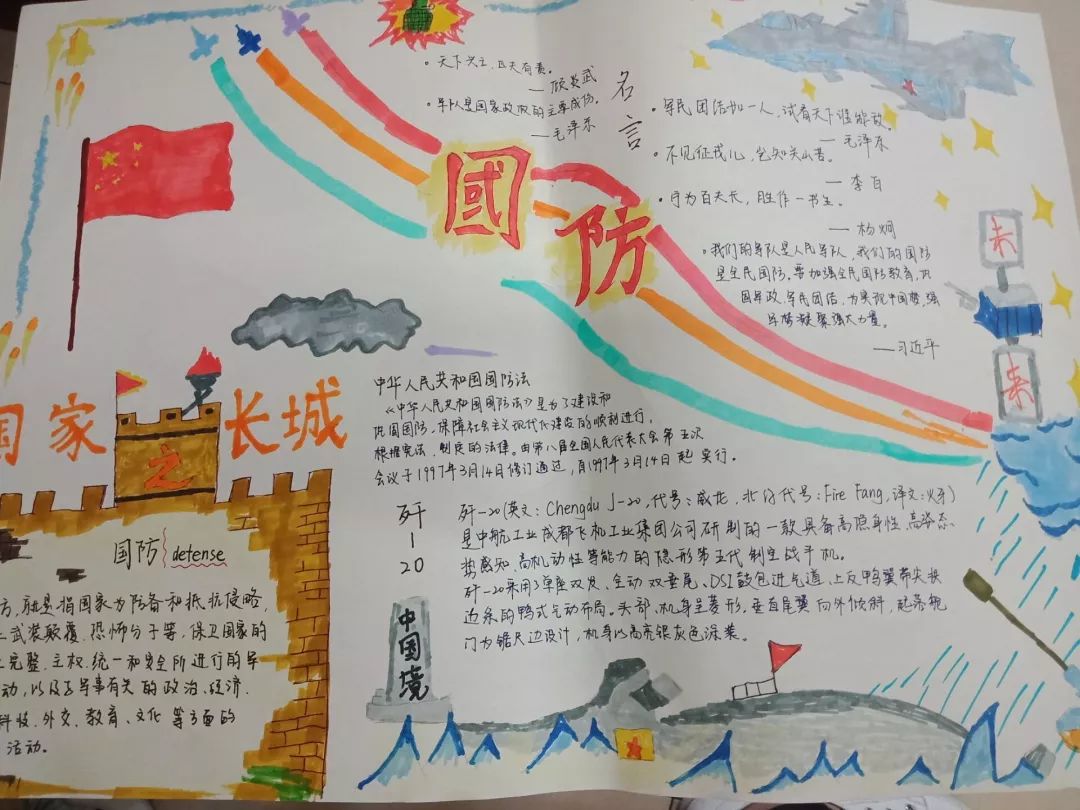 天下兴亡,匹夫有责。
——顾炎武
军队是国家政权的主要成份。
——毛泽东
名言
军民团结如一人,试看天下谁能敌。
——毛泽东
不见征戍儿,岂知关山苦。
——李白
宁为百夫长,胜作一书生。
——杨炯
我们的军队是人民军队,我们的国防
是全民国防。要加强全民国防教育,巩
固军政、军民团结,为实现中国梦,强
军梦凝聚强大力量。
——习近平
國防
未来
国家之长城
中华人民共和国国防法
《中华人民共和国国防法》是为了建设和
巩固国防,保障社会主义现代化建设的顺利进行,
根据宪法,制定的法律。由第八届全国人民代表大会第五次
会议于1997年3月14日修订通过,自1997年3月14日起实行。
歼-20
歼-20(英文:Chengdu J-20,代号:威龙,北约代号:Fire Fang,译文:火牙)
是中航工业成都飞机工业集团公司研制的一款具备高隐身性、高态
势感知、高机动性等能力的隐形第五代制空战斗机。
歼-20采用了单座双发、全动双垂尾、DSI鼓包进气道、上反鸭翼带尖拱
边条的鸭式气动布局。头部、机身呈菱形,垂直尾翼向外倾斜,起落舱
门为锯尺边设计,机身以高亮银灰色涂装。
中国境
国防 detense
方,就是指国家为防备和抵抗侵略,
止武装颠覆、恐怖分子等,保卫国家的
土完整、主权、统一和安全所进行的军
动,以及与军事有关的政治、经济、
科技、外交、教育、文化等方面的
活动。